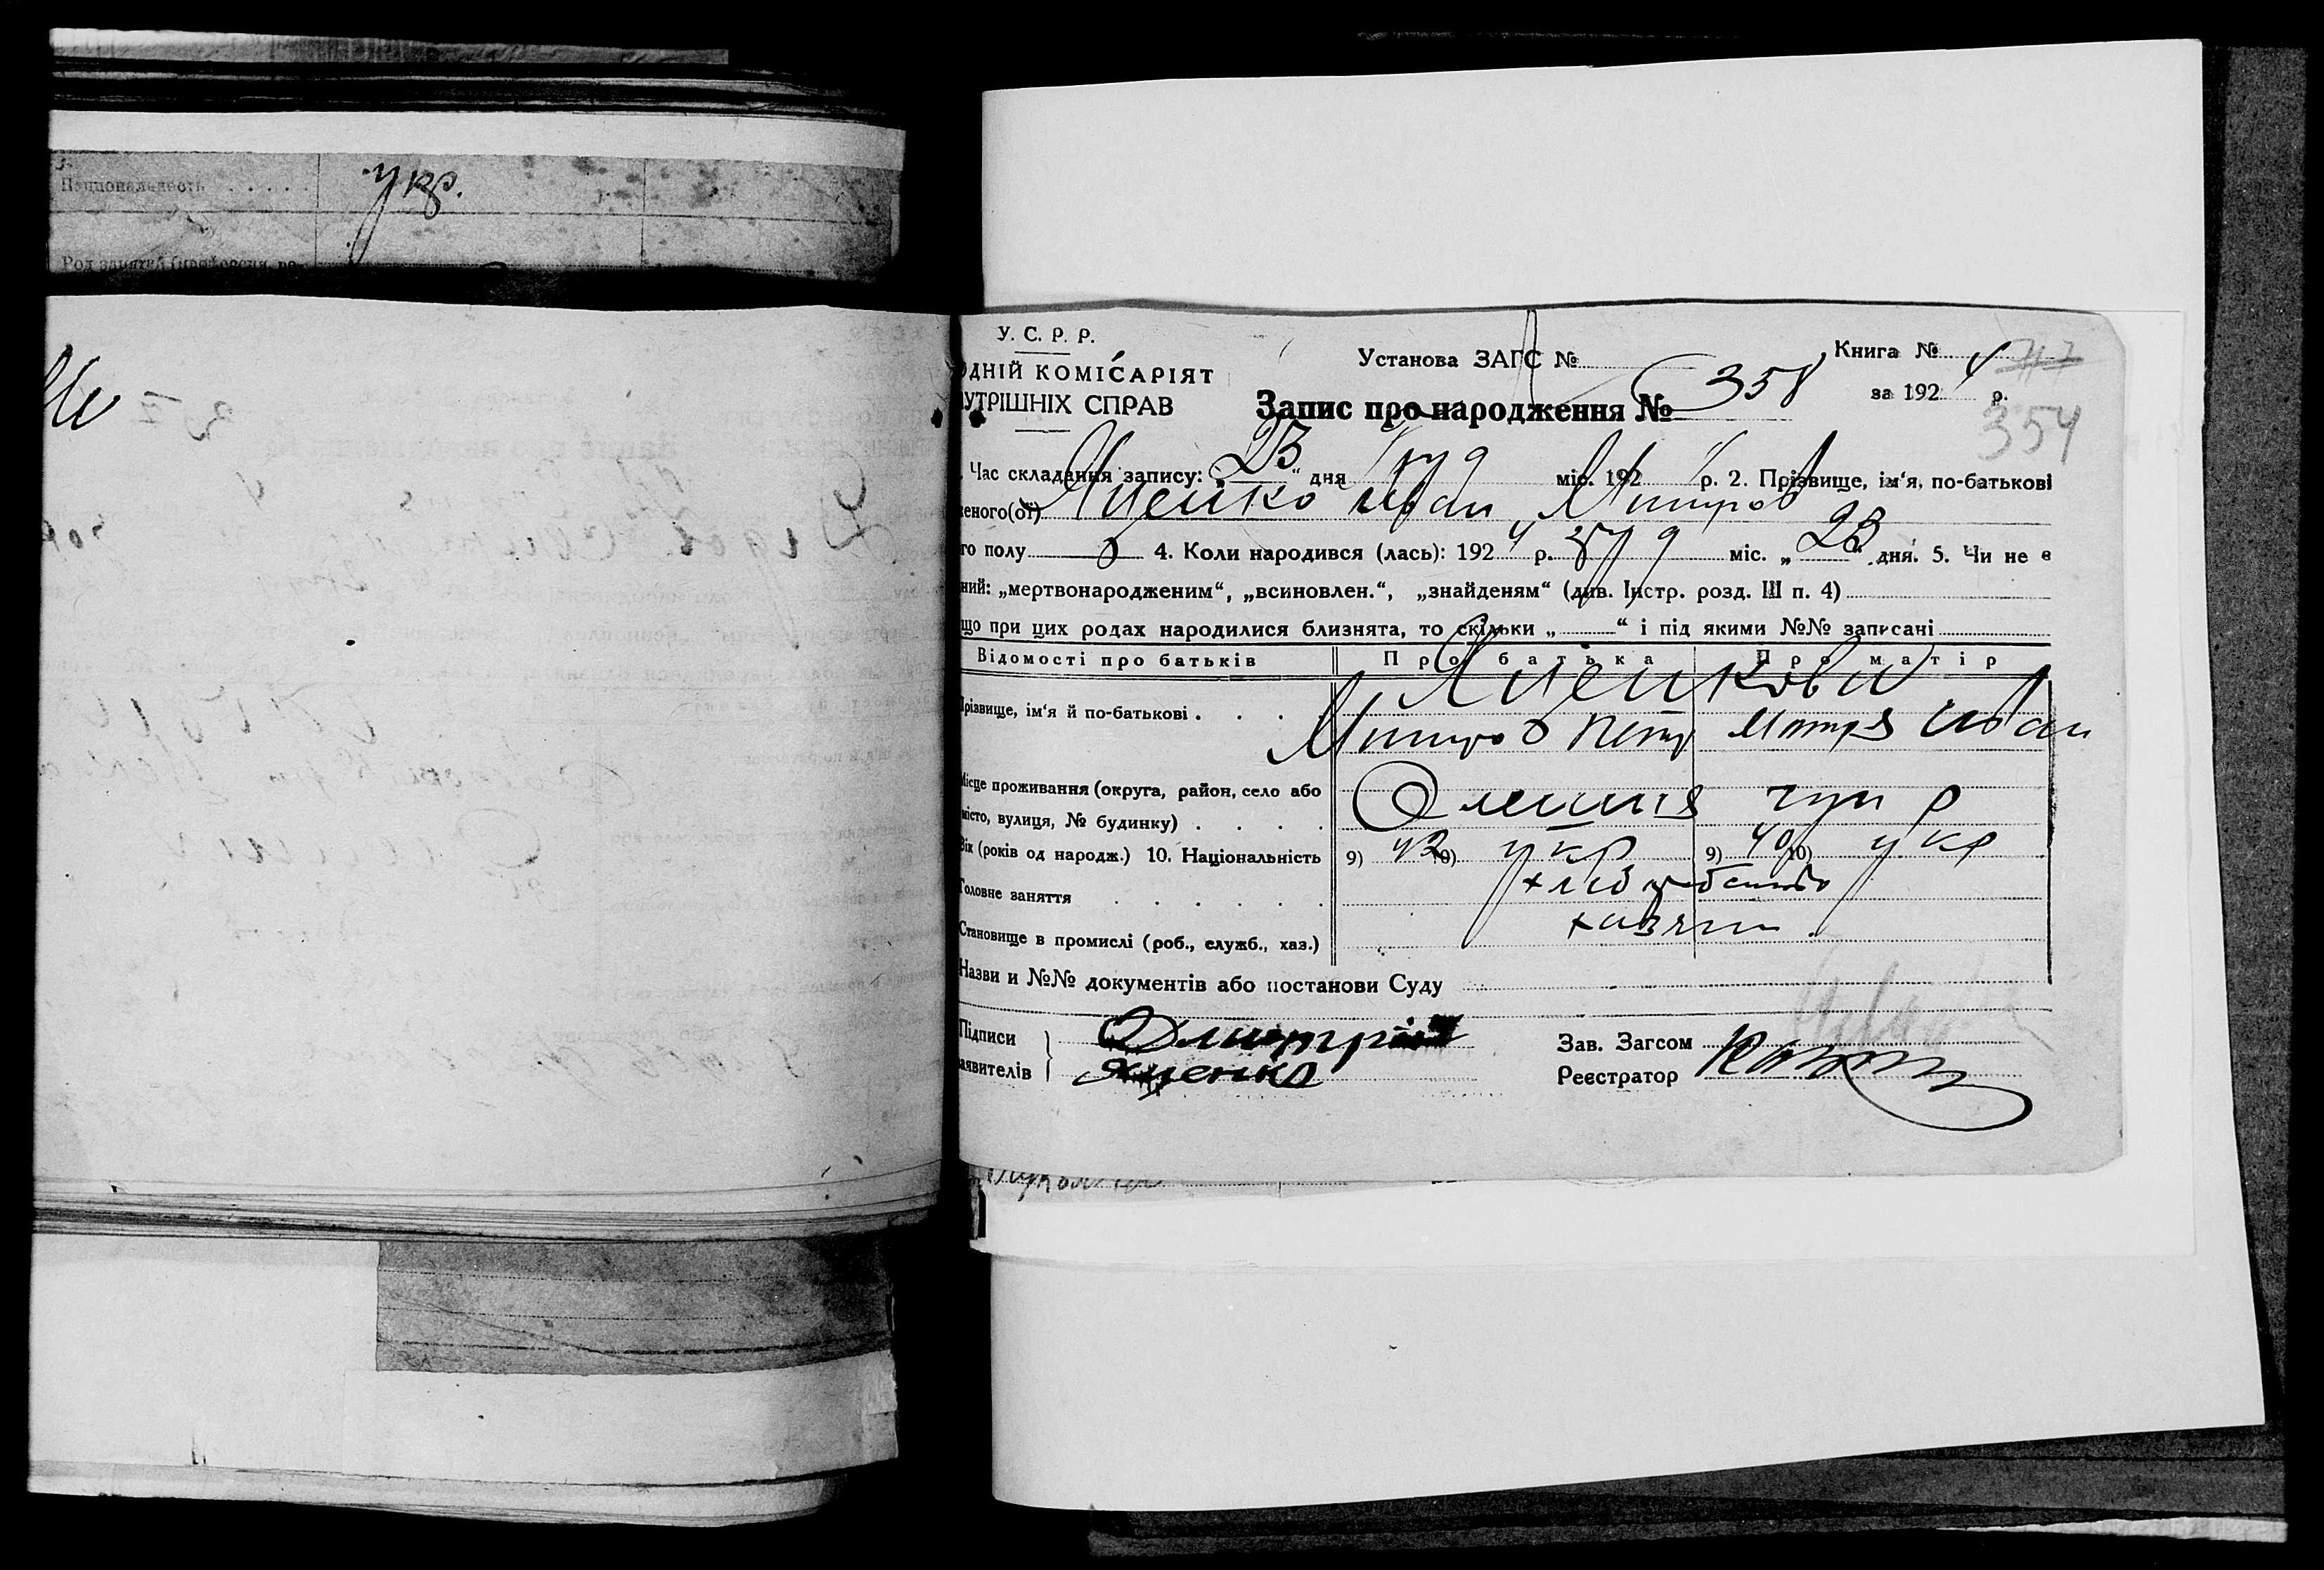 Национальность . . . . . укр.
У. С. Р. Р.
ОДНІЙ КОМІСАРІЯТ
УТРІШНІХ СПРАВ
Установа ЗАГС №
Книга №
Запис про народження № 358
за 1924 р.
354
Час складання запису: „23“ дня груд міс. 1924 р. 2. Прізвище, ім'я, по-батькові
еного(ої) Яценко Иван Митров
го полу ч 4. Коли народився (лась): 1924 р. груд міс. „23“ дня. 5. Чи не є
ний: „мертвонародженим“, „всиновлен.“, „знайденям“ (див. Інстр. розд. III п. 4)
що при цих родах народилися близнята, то скільки „ “ і під якими №№ записані
Відомості про батьків Про батька Про матір
Яценкови
різвище, ім'я й по-батькові . . . .
Митро Петр Мотря Иван
Місце проживання (округа, район, село або
місто, вулиця, № будинку) . . . .
Вік (років од народж.) 10. Національність 9) 42 10) укр 9) 40 10) укр
Головне заняття . . . . . . хлібробство
Становище в промислі (роб., служб., хаз.) хазяин
Назви и №№ документів або постанови Суду
Підписи Дмитрій
аявителів Яценко
Зав. Загсом
Реєстратор